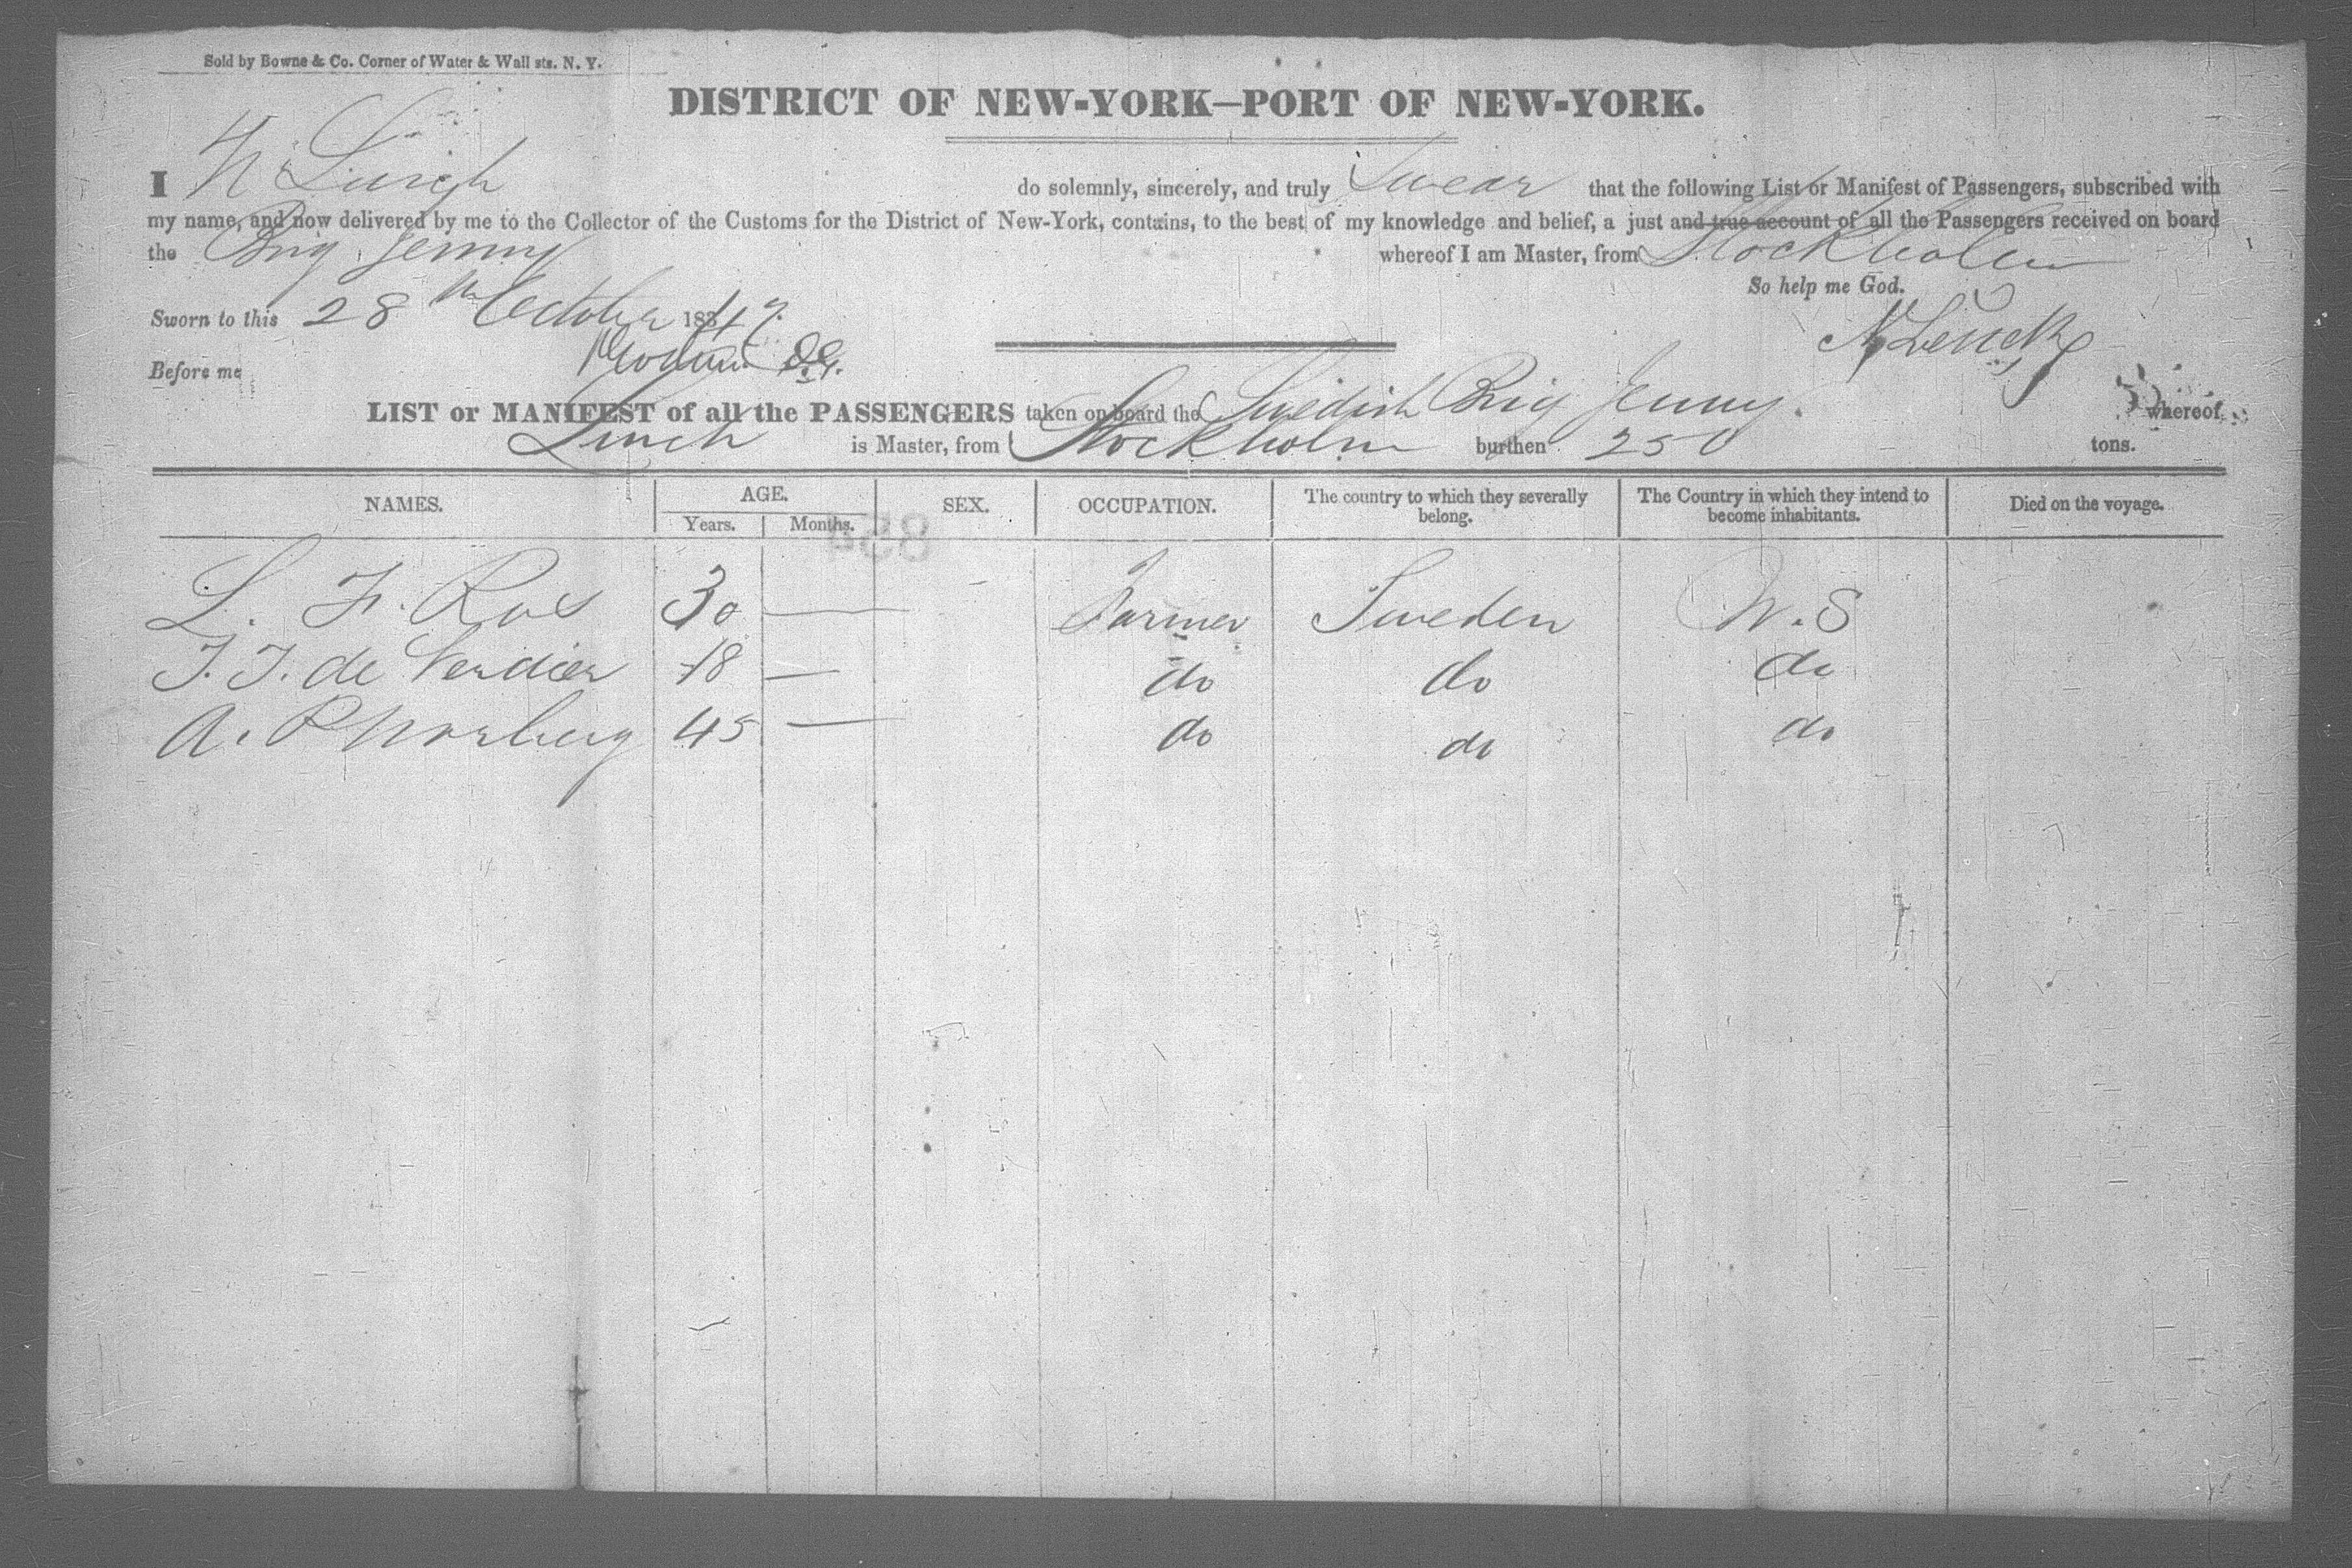 Sold by Bowne & Co. Corner of Water & Wall sts. N. Y.
DISTRICT OF NEW-YORK—PORT OF NEW-YORK.
I N do solemnly, sincerely, and truly Swear that the following List or Manifest of Passengers, subscribed with
my name, and now delivered by me to the Collector of the Customs for the District of New-York, contains, to the best of my knowledge and belief, a just and true account of all the Passengers received on board
the Brig Jenny whereof I am Master, from Stockholm
So help me God.
Sworn to this 28th October 183
Before me
LIST or MANIFEST of all the PASSENGERS taken on board the Swedish Brig Jenny. whereof
is Master, from Stockholm burthen 250 tons.
NAMES. AGE. SEX. OCCUPATION. The country to which they severally belong. The Country in which they intend to become inhabitants. Died on the voyage.
Years. Months.
L. F. 30 — Farmer Sweden
J. J. de Verdier 18 — do do do
A. 45 — do do do